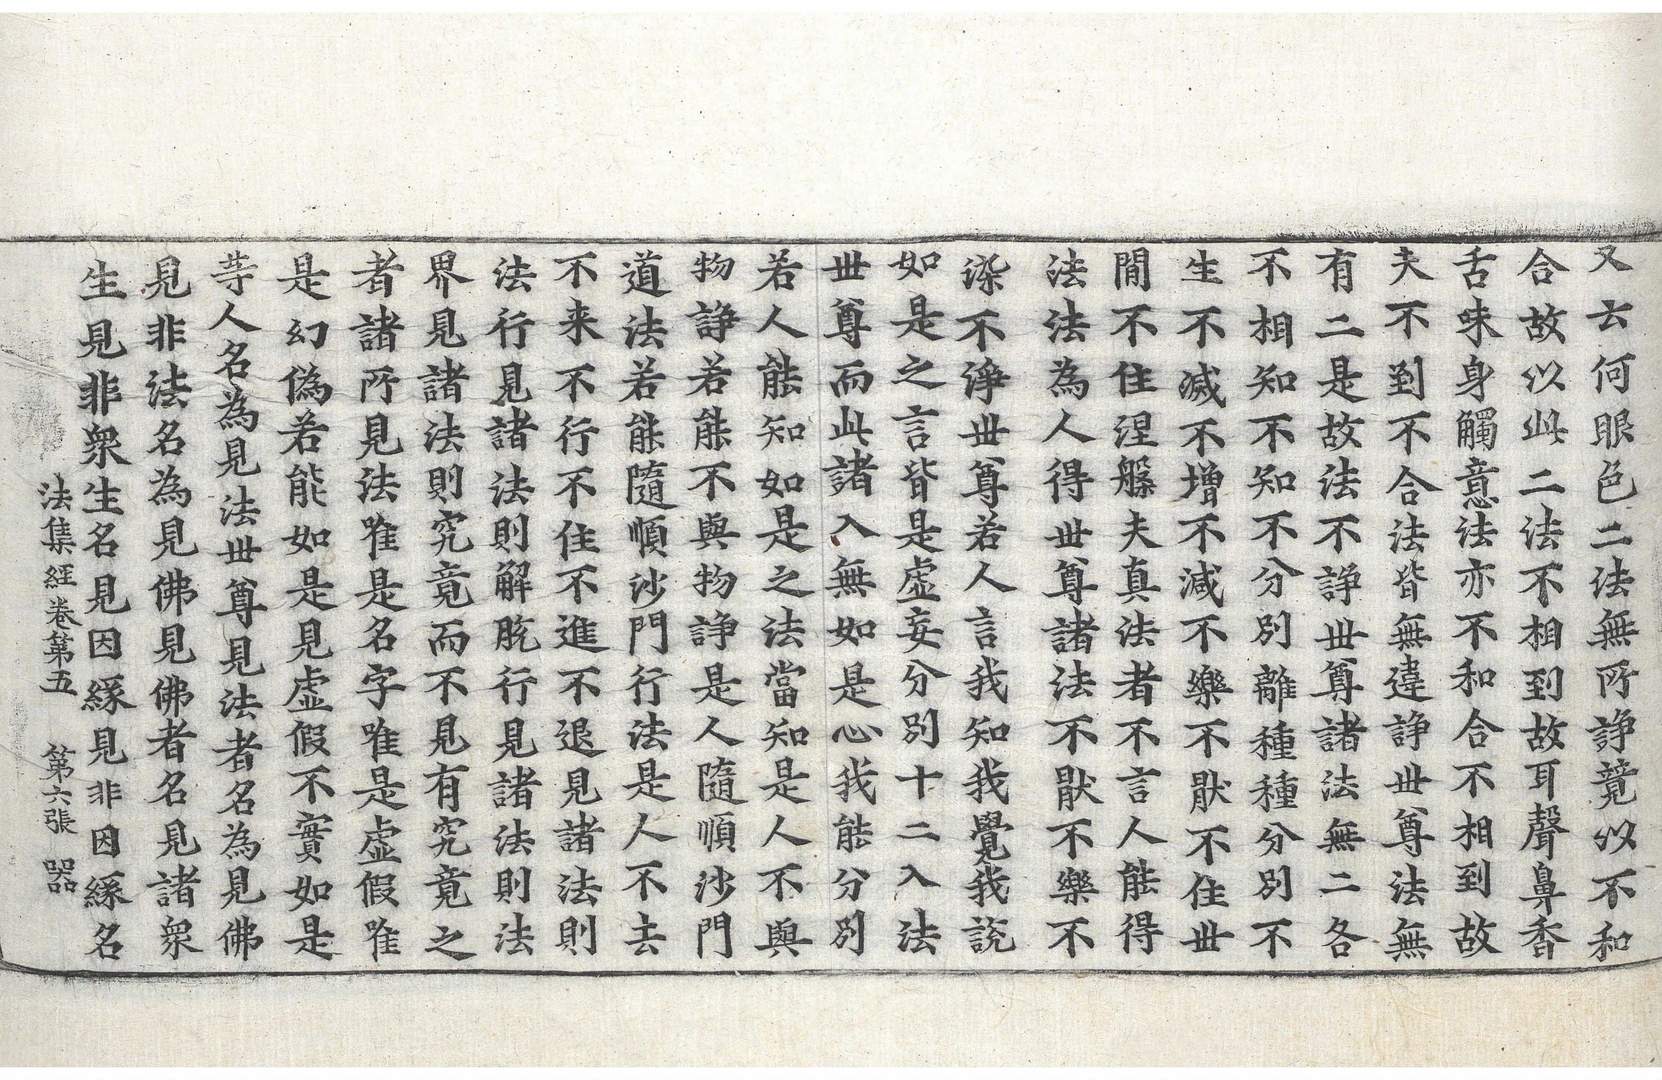 又云何眼色二法無所諍競以不和
合故以此二法不相到故耳聲鼻香
舌味身觸意法亦不和合不相到故
夫不到不合法皆無違諍世尊法無
有二是故法不諍世尊諸法無二各
不相知不知不分別離種種分別不
生不滅不增不減不樂不猒不住世
間不住涅槃夫真法者不言人能得
法法為人得世尊諸法不猒不樂不
染不淨世尊若人言我知我覺我說
如是之言皆是虛妄分別十二入法
世尊而此諸入無如是心我能分別
若人能知如是之法當知是人不與
物諍若能不與物諍是人隨順沙門
道法若能隨順沙門行法是人不去
不来不行不住不進不退見諸法則
法行見諸法則解脫行見諸法則法
界見諸法則究竟而不見有究竟之
者諸所見法唯是名字唯是虛假唯
是幻偽若能如是見虛假不實如是
等人名為見法世尊見法者名為見佛
見非法名為見佛見佛者名見諸衆
生見非衆生名見因緣見非因緣名
法集經卷第五　第六張　器